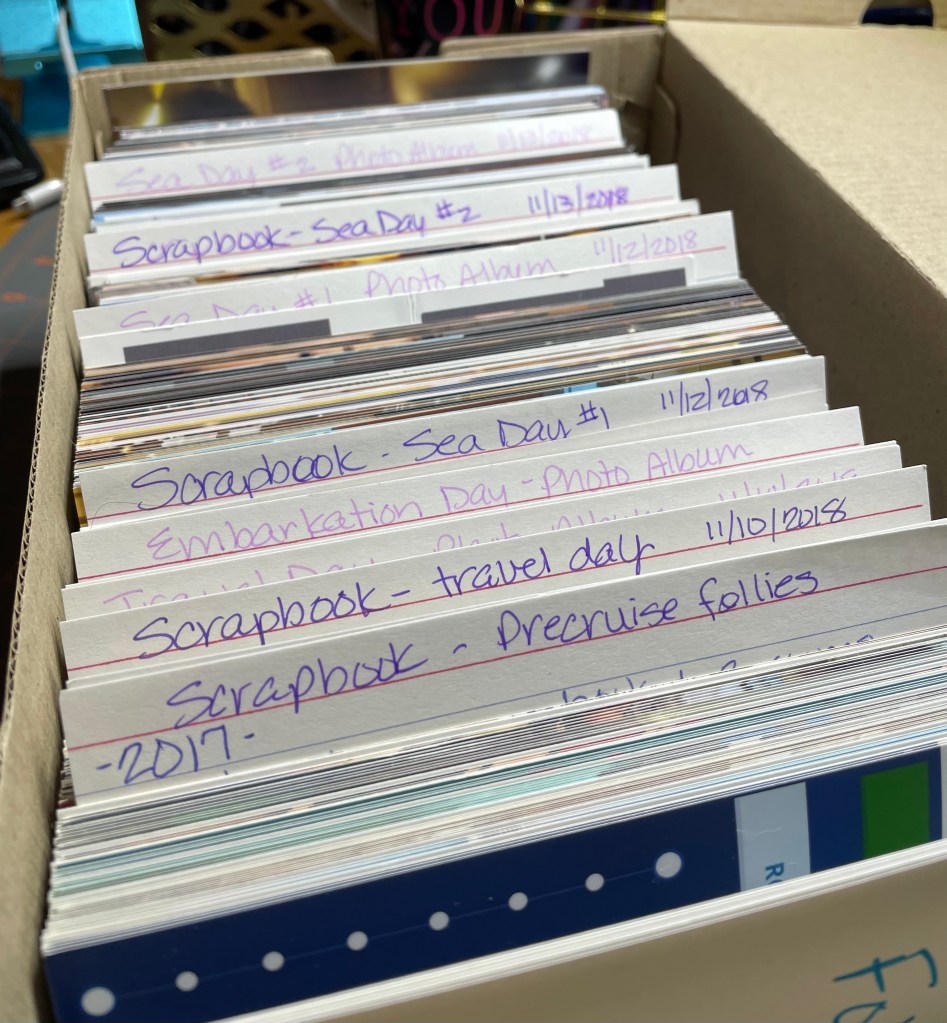 YOU
Sea Day #2 Photo Album 11/13/2018
Scrapbook - Sea Day #2 11/13/2018
Sea Day #1 Photo Album 11/12/2018
Scrapbook - Sea Day #1 11/12/2018
Embarkation Day - Photo Album
Travel Day - Photo Album
Scrapbook - travel day 11/10/2018
Scrapbook - Precruise follies
-2017-